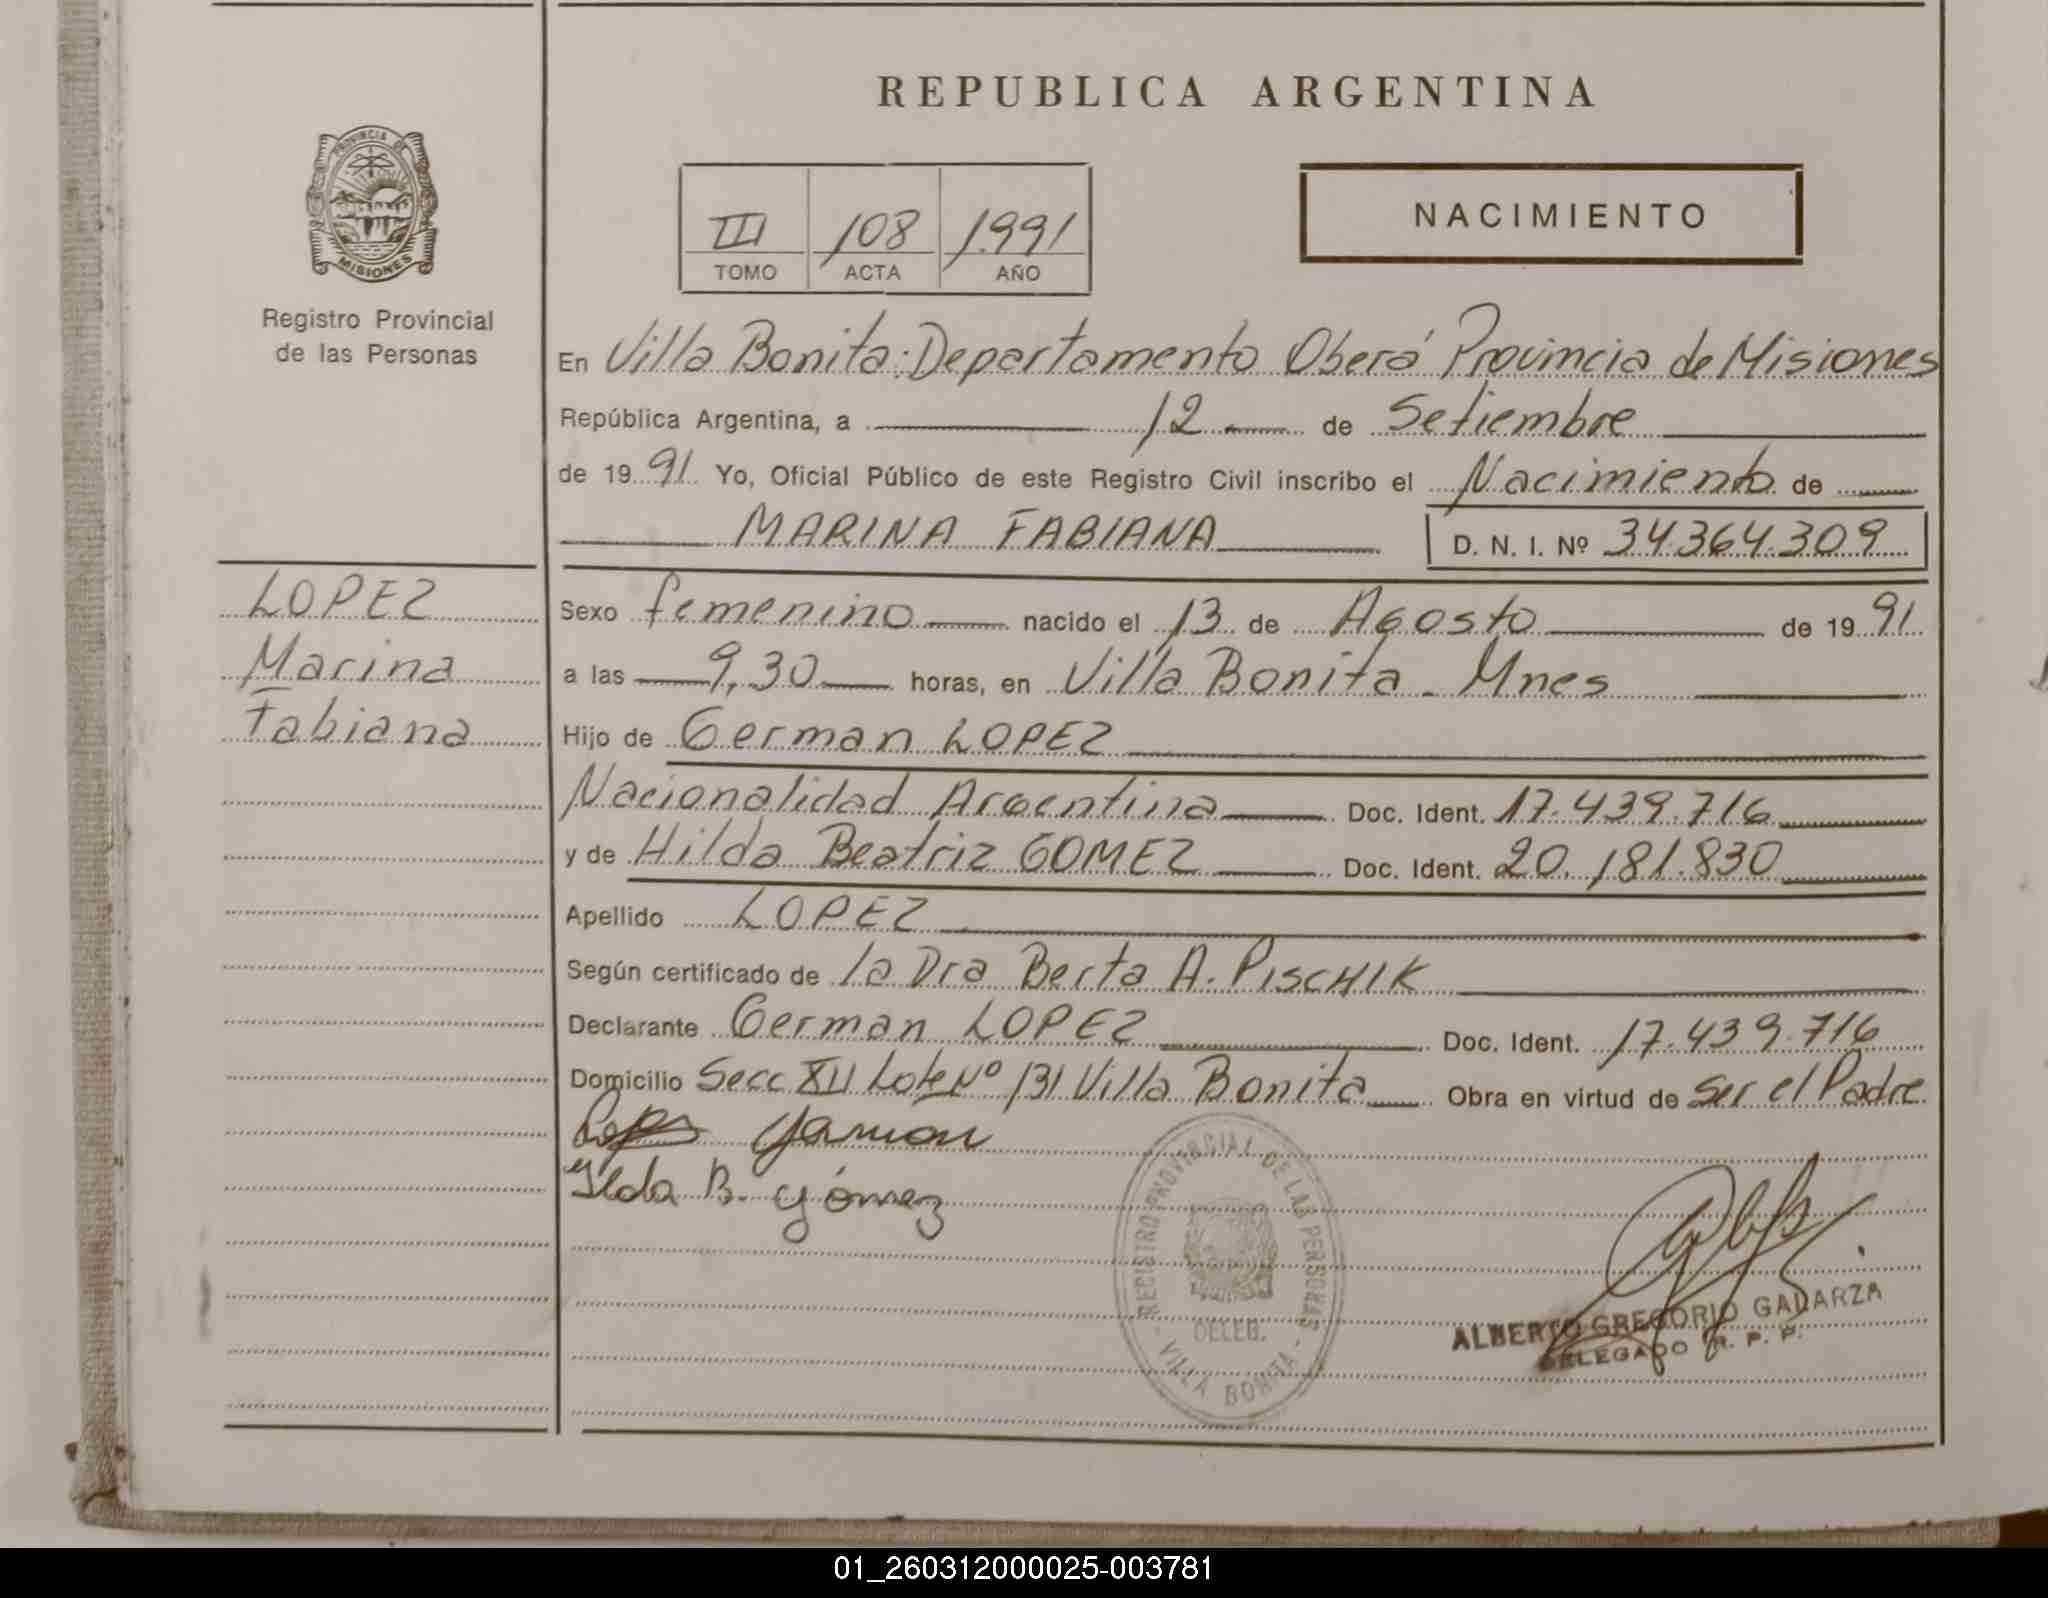 REPUBLICA ARGENTINA
PROVINCIA DE
MISIONES
Registro Provincial
de las Personas
III 108 1.991
TOMO ACTA AÑO
NACIMIENTO
En Villa Bonita: Departamento Oberá Provincia de Misiones
República Argentina, a 12 de Setiembre
de 19 91 Yo, Oficial Público de este Registro Civil inscribo el Nacimiento de
MARINA FABIANA D. N. I. Nº 34.364.309
LOPEZ
Marina
Fabiana
Sexo femenino nacido el 13 de Agosto de 19 91
a las 9,30 horas, en Villa Bonita - Mnes
Hijo de German LOPEZ
Nacionalidad Argentina Doc. Ident. 17.439.716
y de Hilda Beatriz GOMEZ Doc. Ident. 20.181.830
Apellido LOPEZ
Según certificado de la Dra Berta A. PISCHIK
Declarante German LOPEZ Doc. Ident. 17.439.716
Domicilio Secc XII Lote Nº 131 Villa Bonita Obra en virtud de Ser el Padre
Ilda B. Gómez
REGISTRO PROVINCIAL DE LAS PERSONAS
DELEG.
- VILLA BONITA -
ALBERTO GREGORIO GALARZA
DELEGADO R. P. P.
01_260312000025-003781